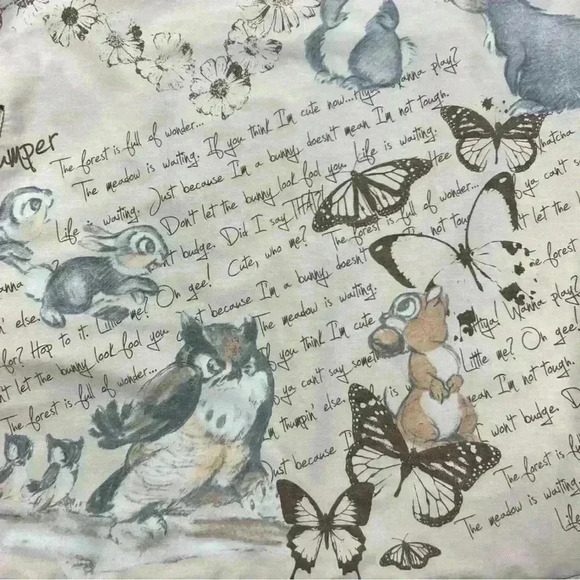 umper
The forest is full of wonder... If you think I'm cute now...Hiya! Wanna play?
The meadow is waiting. doesn't mean I'm not tough.
Life is waiting. Just because I'm a bunny, Life is waiting. Whatcha
Don't let the bunny look fool you. Hee ya can't s
n't budge. Did I say THAT? The forest is full of wonder... n't let the
anna Cute, who me? doesn't not tou he forest
n' else. Oh gee! I'm a bunny, The meadow is waiting. Hiya! Wanna play?
for? Hop to it. Little me? just because you think I'm cute Little me? Oh gee!
't let the bunny look fool you f ya can't say somet ean I'm not tough.
The forest is full of wonder... 'm thumpin' else. is won't budge. D
Just because I The forest is full
The meadow is waiting
The meadow is waiting. Life